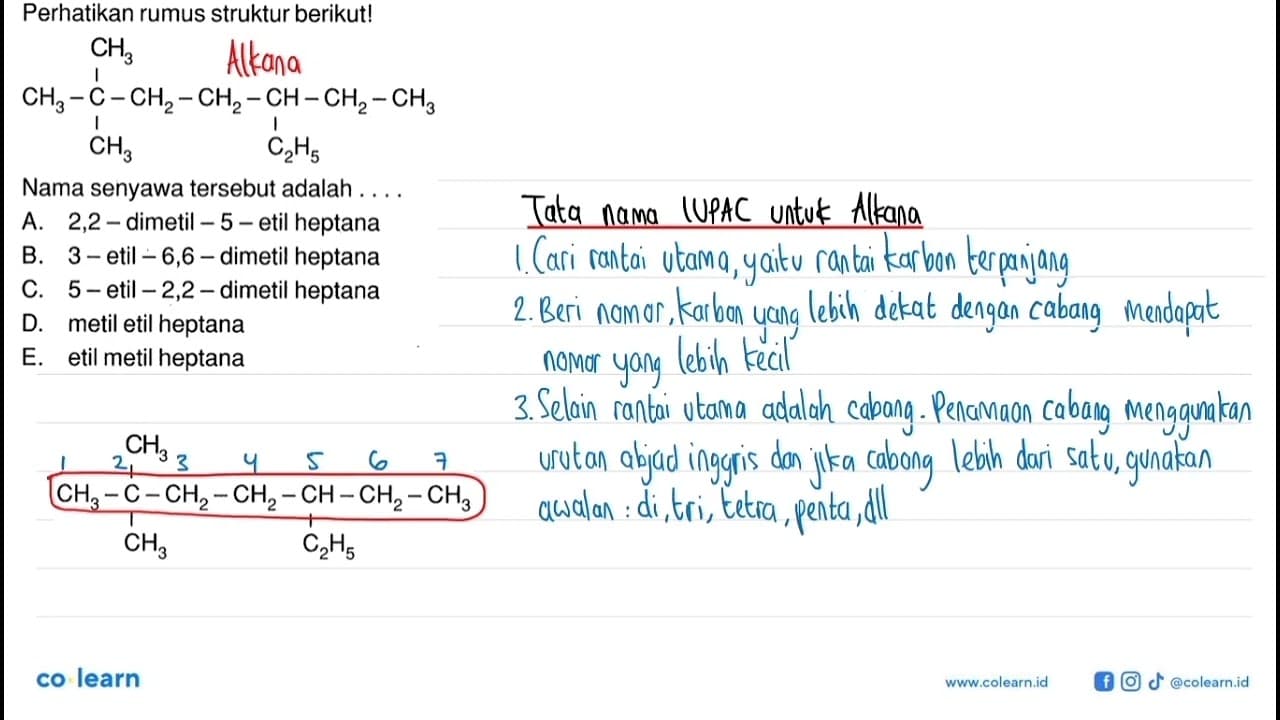 Perhatikan rumus struktur berikut!
CH₃
Alkana
CH₃ – C – CH₂ – CH₂ – CH – CH₂ – CH₃
CH₃ C₂H₅
Nama senyawa tersebut adalah . . . .
A. 2,2 – dimetil – 5 – etil heptana
B. 3 – etil – 6,6 – dimetil heptana
C. 5 – etil – 2,2 – dimetil heptana
D. metil etil heptana
E. etil metil heptana
CH₃
1 2 3 4 5 6 7
CH₃ – C – CH₂ – CH₂ – CH – CH₂ – CH₃
CH₃ C₂H₅
Tata nama IUPAC untuk Alkana
1. Cari rantai utama, yaitu rantai karbon terpanjang
2. Beri nomor, karbon yang lebih dekat dengan cabang mendapat
nomor yang lebih kecil
3. Selain rantai utama adalah cabang. Penamaan cabang menggunakan
urutan abjad inggris dan jika cabang lebih dari satu, gunakan
awalan : di, tri, tetra, penta, dll
co learn
www.colearn.id
@colearn.id